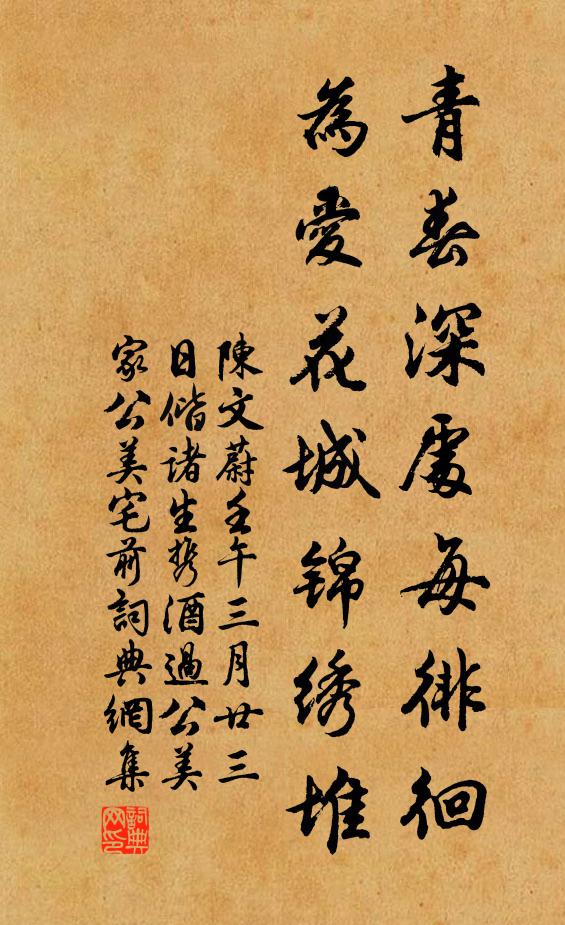 青春深處每徘徊
為愛花城锦绣堆
陳文蔚壬午三月廿三
日偕诸生携酒過公美
家公美宅前詞典網集
詞典网印